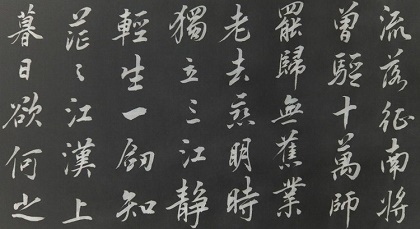 流落征南將
曾驅十萬師
罷歸無舊業
老去戀明時
獨立三江靜
輕生一劍知
茫〻江漢上
暮日欲何之